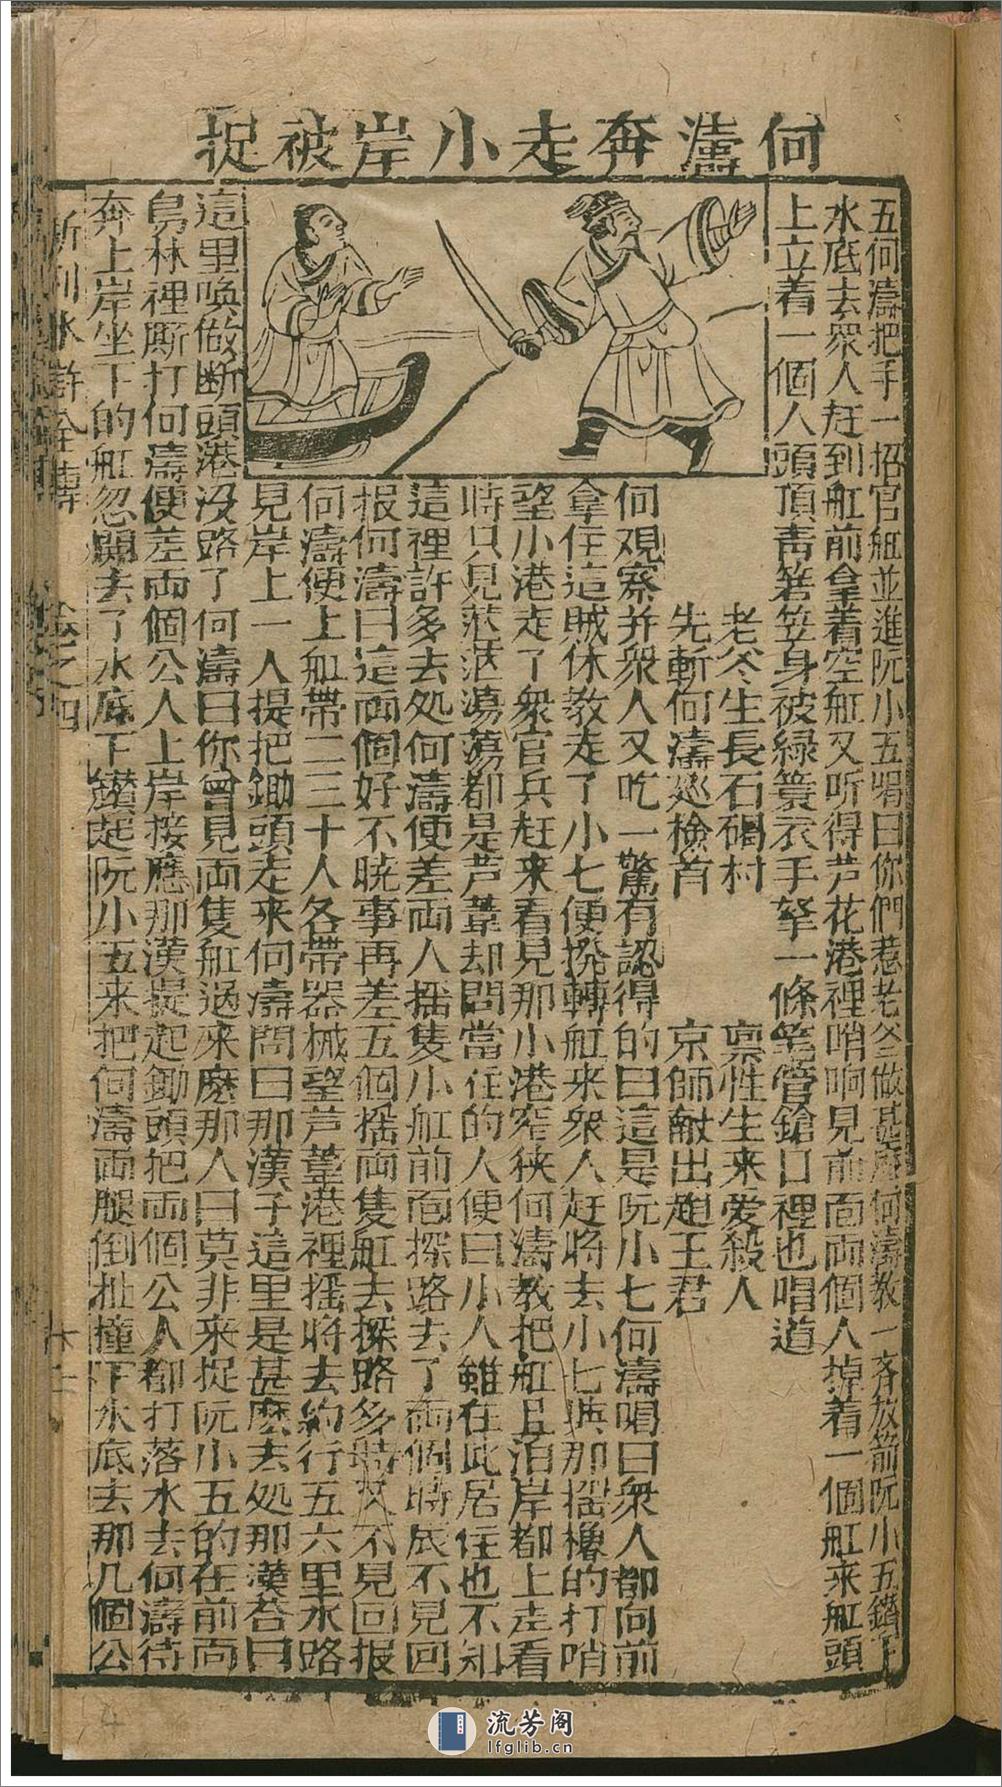 何濤奔走小岸被捉
五何濤把手一招官舡並進阮小五唱曰你們惹老爹做甚麼何濤教一齐放箭阮小五鑽下
水底去眾人赶到舡前拿着空舡又听得芦花港裡哨响見前面両個人掉着一個舡来舡頭
上立着一個人頭頂青箬笠身被緑簑衣手拏一條筆管鎗口裡也唱道
老爹生長石碣村
禀性生来爱殺人
先斬何濤廵檢首
京師献出趙王君
何观察并衆人又吃一驚有認得的曰這是阮小七何濤唱曰衆人都向前
拿住這賊休教走了小七便撥轉舡来衆人赶将去小七與那摇櫓的打哨
望小港走了衆官兵赶来看見那小港窄狹何濤教把舡且泊岸都上走看
時只見茫茫蕩蕩都是芦葦却問當在的人便曰小人雖在此居住也不知
這裡許多去処何濤便差両人摇隻小舡前面探路去了両個時辰不見回
报何濤曰這両個好不暁事再差五個摇両隻舡去探路多時又不見回报
何濤便上舡帶二三十人各帶器械望芦葦港裡摇将去約行五六里水路
見岸上一人提把鋤頭走来何濤問曰那漢子這里是甚麽去処那漢荅曰
這里唤做断頭港没路了何濤曰你曾見両隻舡過来麽那人曰莫非来捉阮小五的在前面
烏林裡厮打何濤便差両個公人上岸接應那漢提起鋤頭把両個公人都打落水去何濤待
奔上岸坐下的舡忽開去了水底下鑽起阮小五来把何濤両腿倒扯撞下水底去那几個公
新刊水滸全傳
流芳阁
lfglib.cn